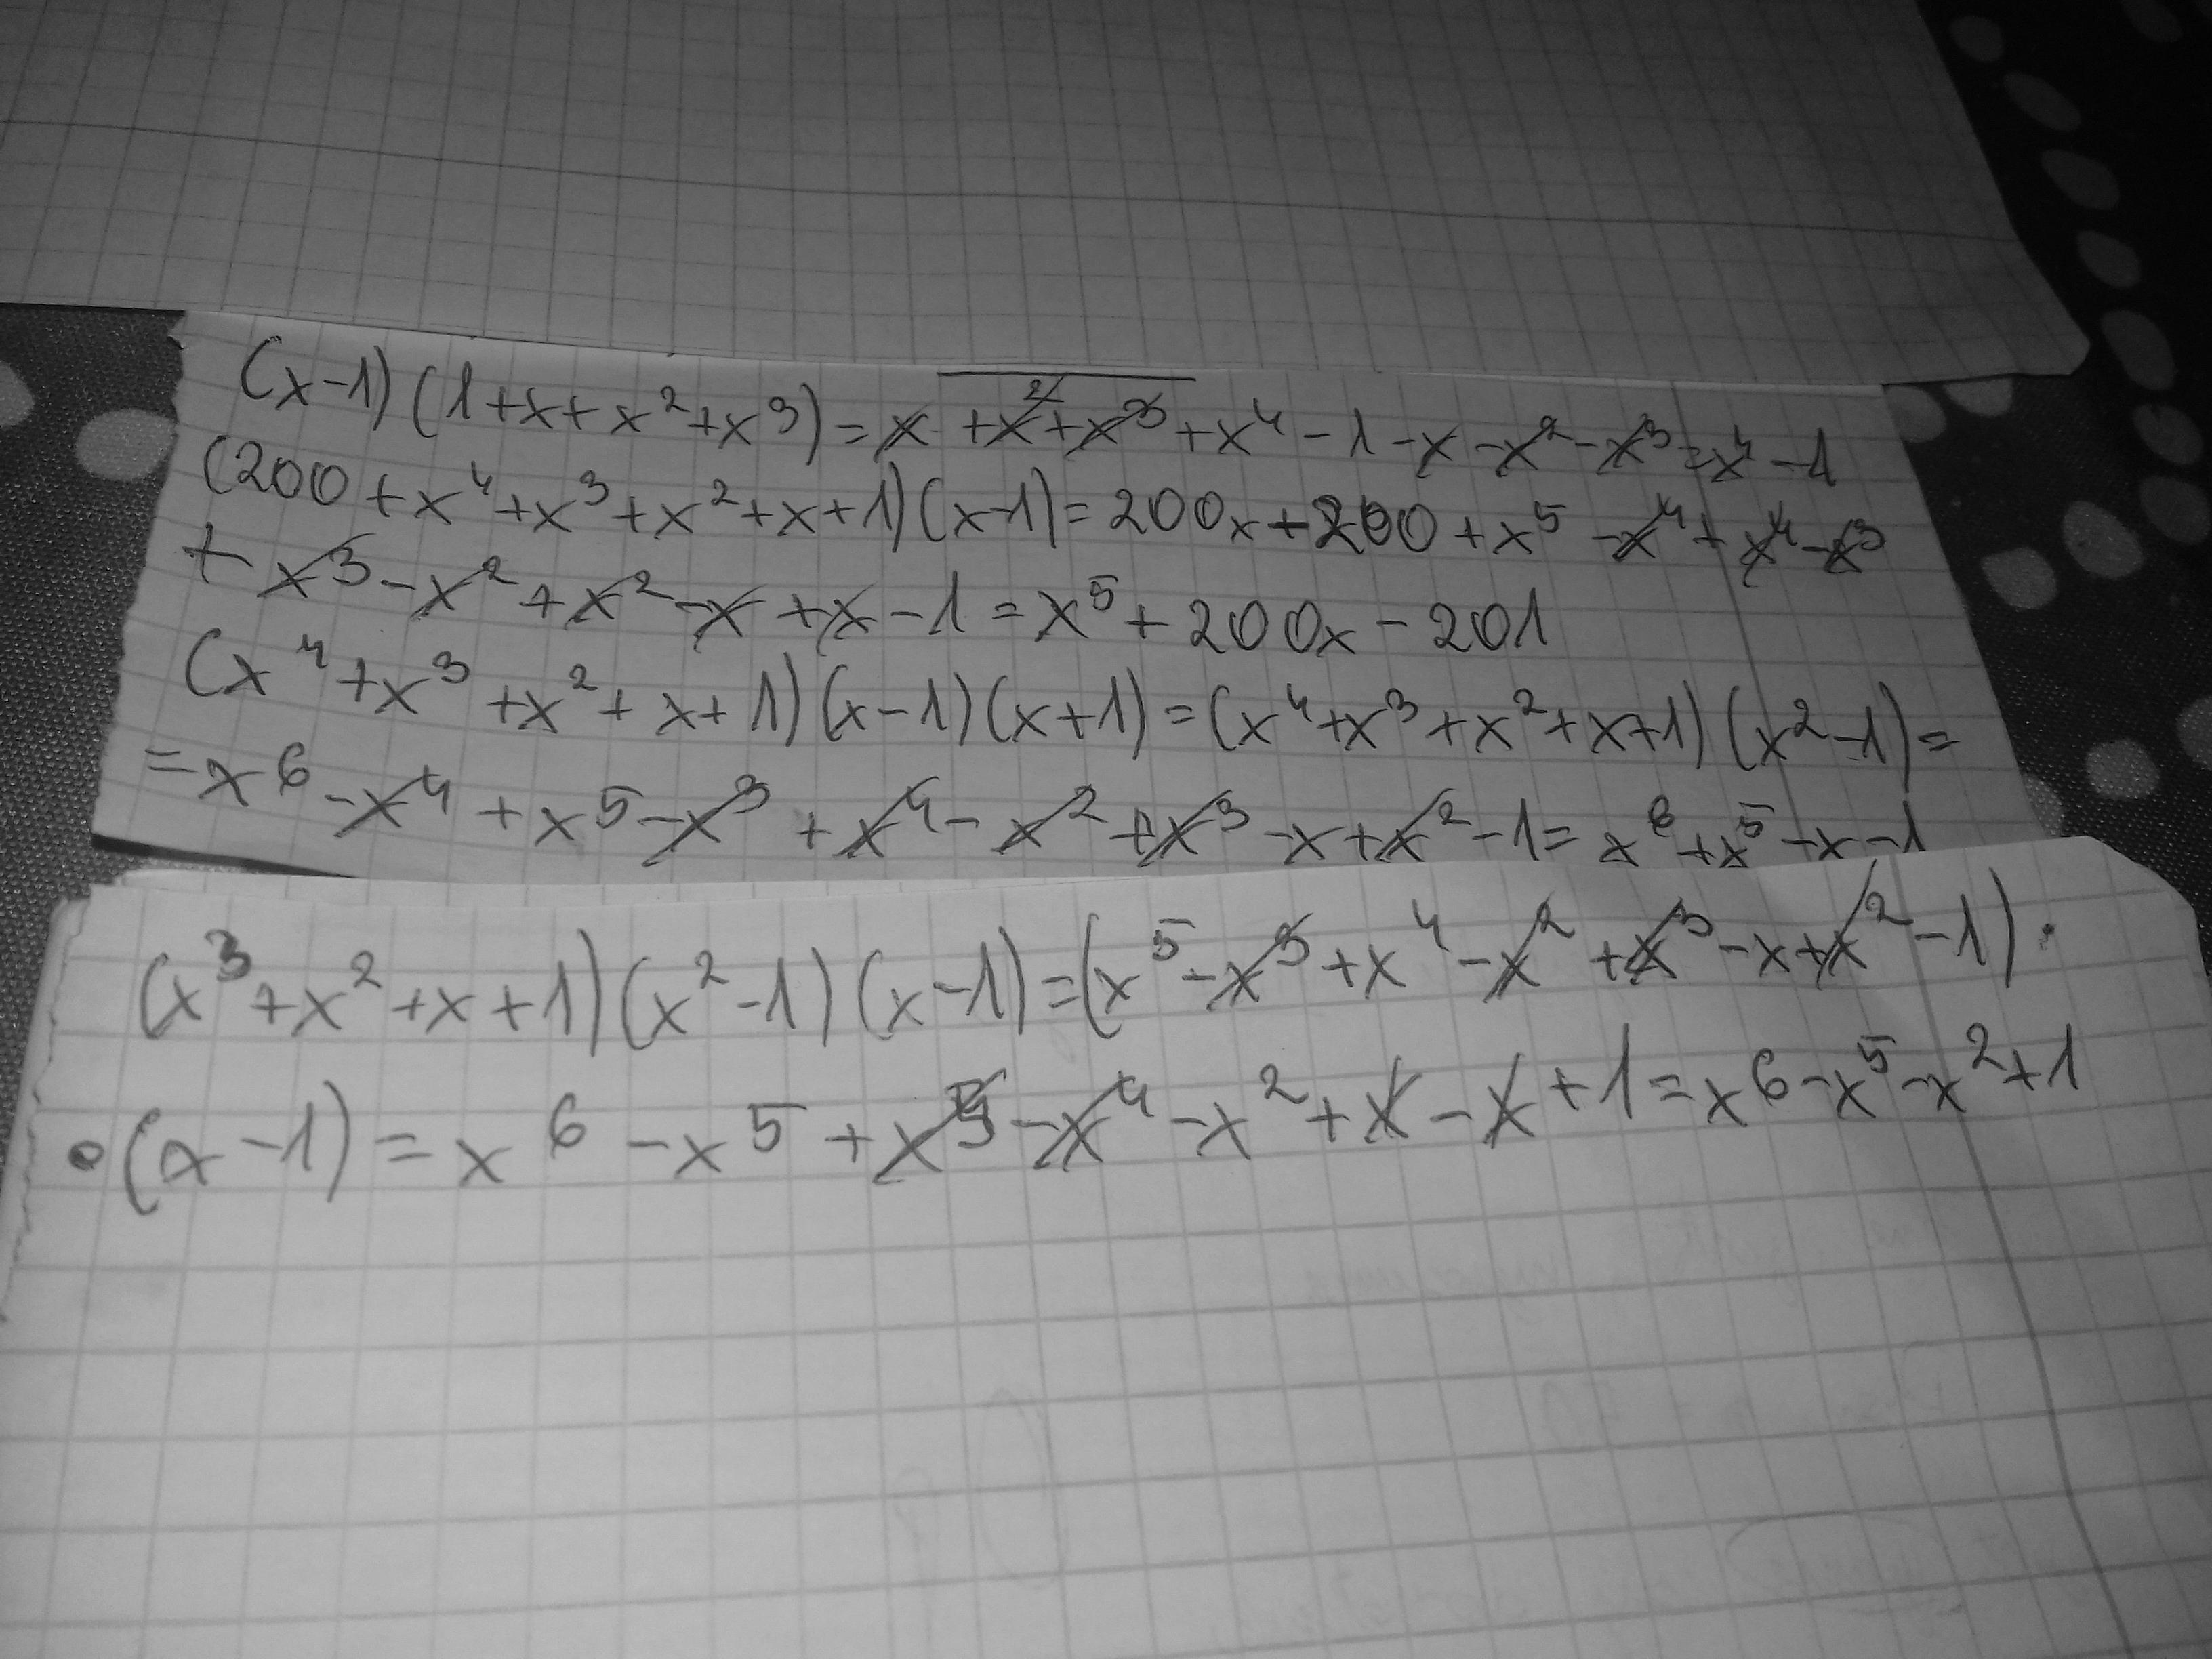 (x-1)(1+x+x²+x³)=x+x²+x³+x⁴-1-x-x²-x³=x⁴-1
(200+x⁴+x³+x²+x+1)(x-1)=200x+200+x⁵-x⁴+x⁴-x³
+x³-x²+x²-x+x-1=x⁵+200x-201
(x⁴+x³+x²+x+1)(x-1)(x+1)=(x⁴+x³+x²+x+1)(x²-1)=
=x⁶-x⁴+x⁵-x³+x⁴-x²+x³-x+x²-1=x⁶+x⁵-x-1
(x³+x²+x+1)(x²-1)(x-1)=(x⁵-x³+x⁴-x²+x³-x+x²-1)·
·(x-1)=x⁶-x⁵+x⁵-x⁴-x²+x-x+1=x⁶-x⁵-x²+1